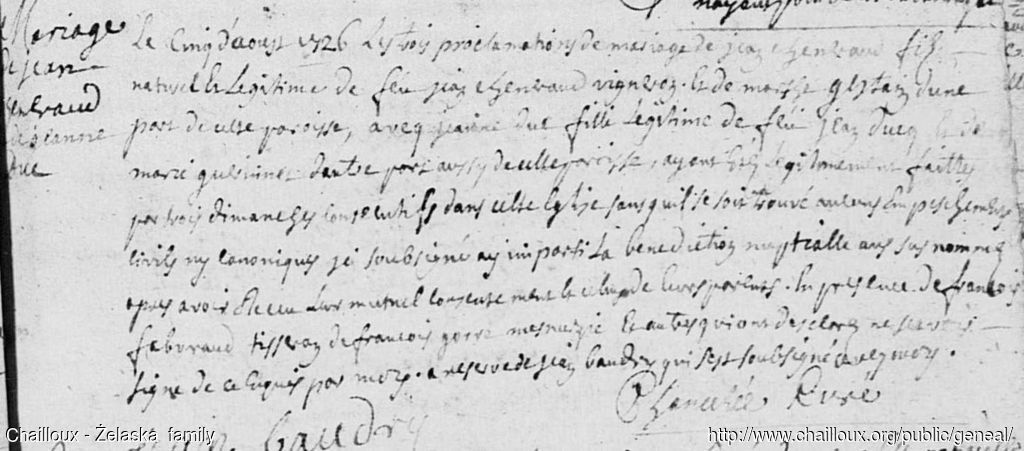 Mariage
de jean
chenbraud
et jeanne
duc
Le Cinq d'aoust 1726 Les trois proclamations de mariage de jean chenbraud fils
naturel et Legitime de feu jean chenbraud vigneron et de marthe gestain dune
part de cette paroisse, aveq jeanne duc fille Legitime de feu jean ducq et de
marie quesinnet dautre part aussy de cette paroisse, ayant Esté Legitimement faittes
par trois dimanches consecutifs dans cette Eglise sans quil se soit trouvé aucuns Empeschements
civils ny canoniques je soubsigné ay imparti La benediction nuptialle aux sus nommez
apres avoir Receu Leur mutuel consentement et celuy de leurs parents. En presence de francois
faburaud tisseran de francois gorré menuzie Et autres qui ont desclaré ne scavoir
signe de ce Enquis par moy. a la reserve de jean baudry qui s'est soubsigné avec moy.
Chancelée Curé
baudry
Chailloux - Želaská family
http://www.chailloux.org/public/geneal/